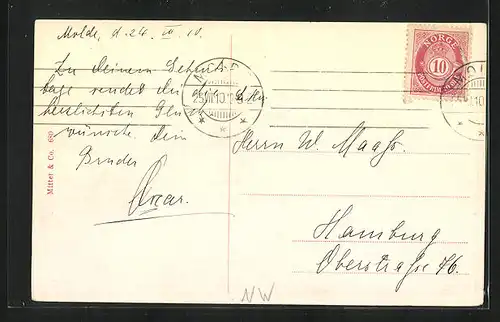 Molde, d. 24. VII 10.
Zu deinem Geburts-
tage sendet dir die
herzlichsten Glück
wünsche dein
Bruder
Oscar.
MOLDE
25 VII 10
NORGE
10
Herrn W. Maass.
Hamburg
Oberstraße 76.
Mitter & Co. 680
NW